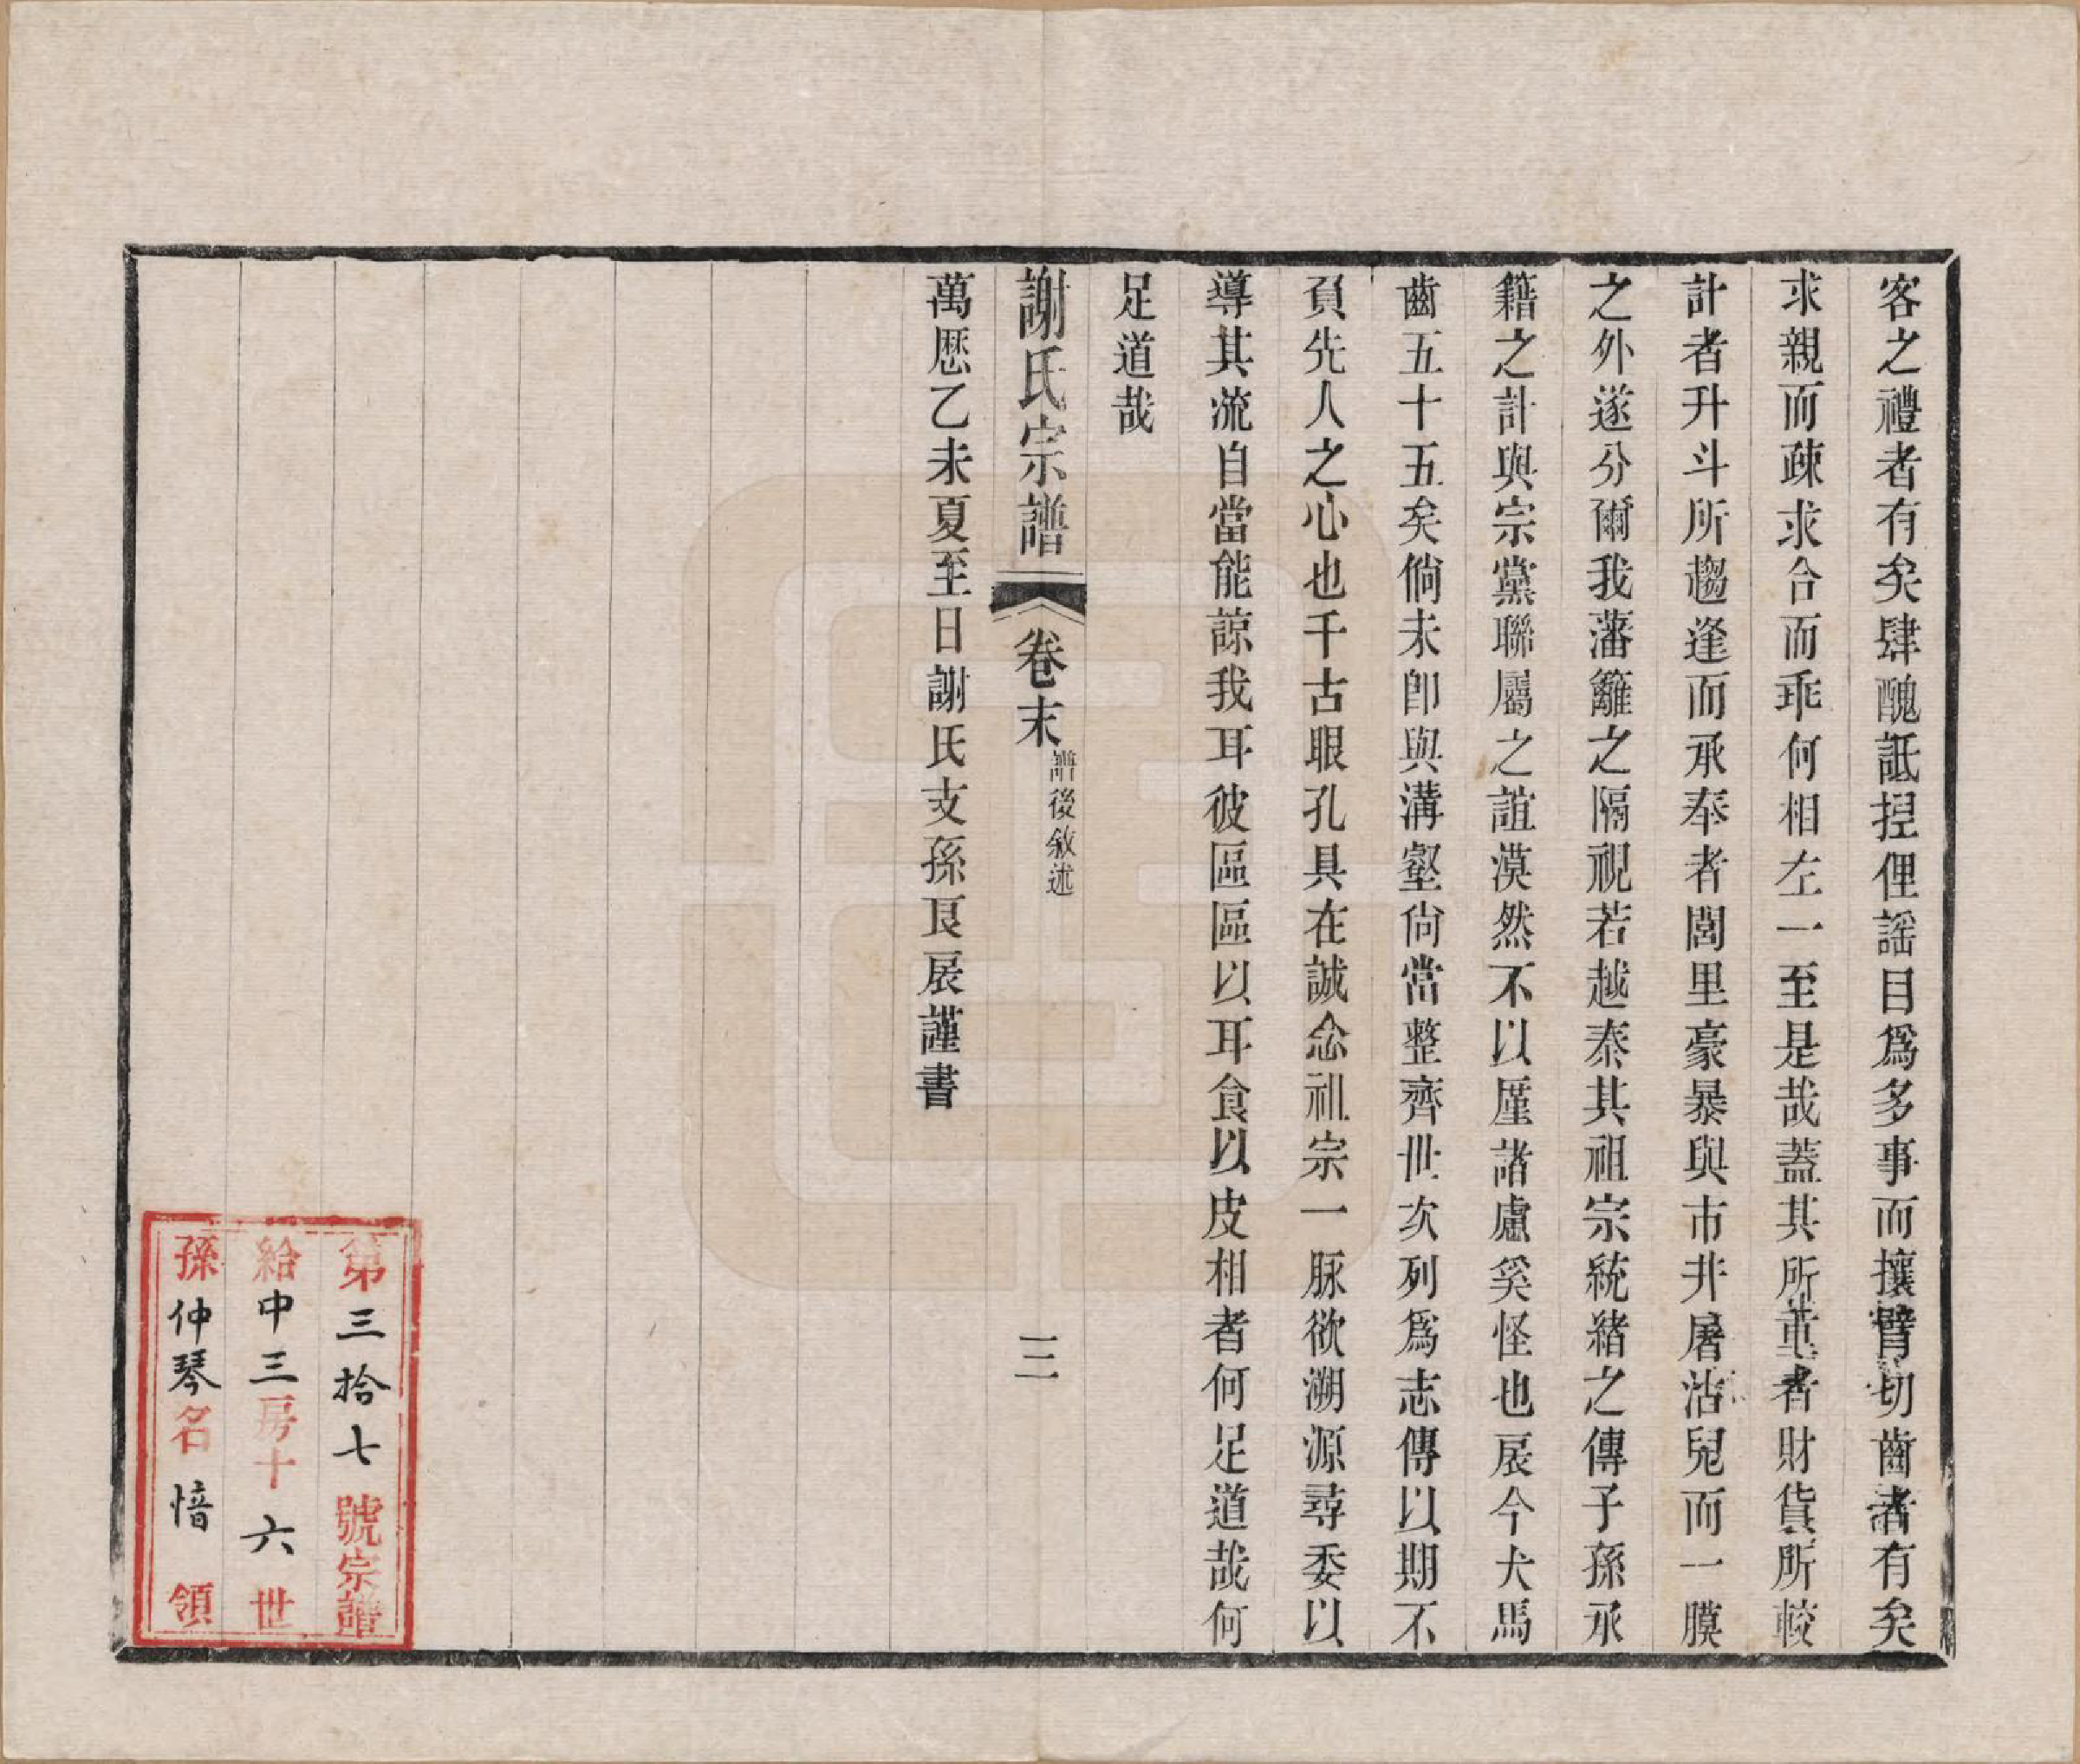 客之禮者有矣肆醜詆捏俚謡目爲多事而攘臂切齒者有矣
求親而疎求合而乖何相左一至是哉蓋其所重者財貨所較
計者升斗所趨逢而承奉者閭里豪暴與市井屠沽兒而一膜
之外遂分爾我藩籬之隔視若越秦其祖宗統緒之傳子孫承
籍之計與宗黨聯屬之誼漠然不以厪諸慮奚怪也扆今犬馬
齒五十五矣倘未卽與溝壑尙當整齊世次列爲志傳以期不
負先人之心也千古眼孔具在誠念祖宗一脉欲溯源尋委以
導其流自當能諒我耳彼區區以耳食以皮相者何足道哉何
足道哉
謝氏宗譜
卷末
譜後敘述
三
萬歷乙未夏至日謝氏支孫良扆謹書
第三拾七號宗譜
給中三房十六世
孫仲琴名愔領